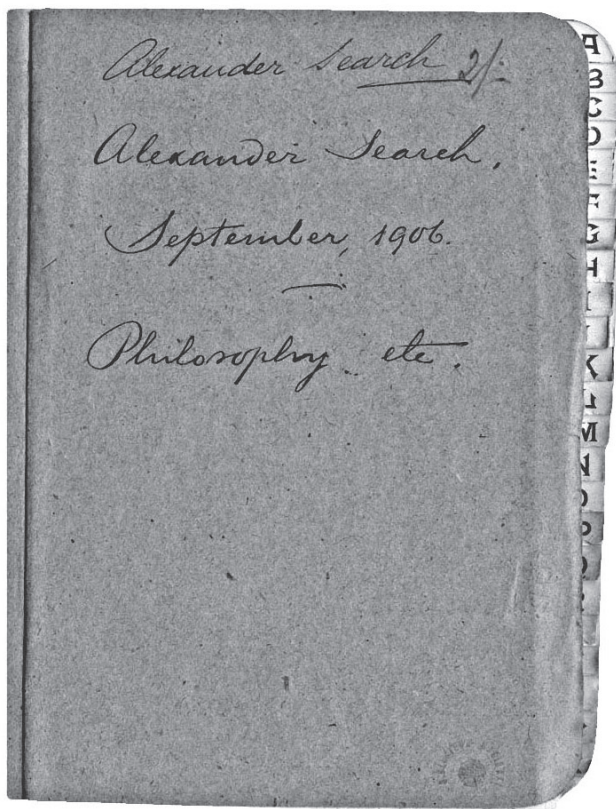 Alexander Search 2/-
Alexander Search.
September, 1906.
Philosophy etc.
A
B
C
D
E
F
G
H
I
K
L
M
N
O
P
Q